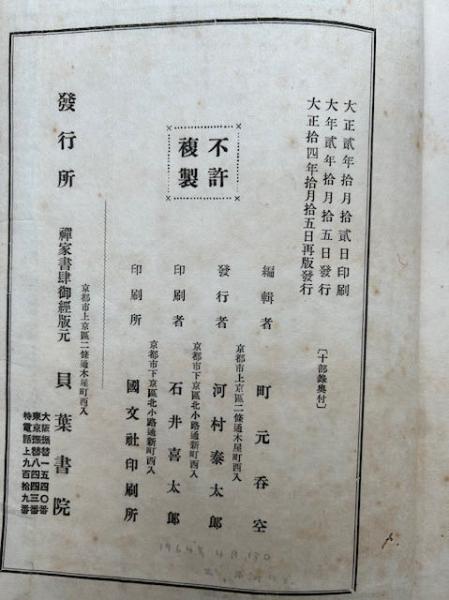 大正貳年拾月拾貳日印刷
大年貳年拾月拾五日發行
大正拾四年拾月拾五日再版發行
〔十部錄奥付〕
不許
複製
編輯者　町元呑空
京都市上京區二條通木屋町西入
發行者　河村泰太郎
京都市下京區北小路通新町西入
印刷者　石井喜太郎
京都市下京區北小路通新町西入
印刷所　國文社印刷所
發行所
京都市上京區二條通木屋町西入
禪家書肆御經版元　貝葉書院
大阪振替一五四〇番
東京振替八四四三番
特電話上九百拾九番